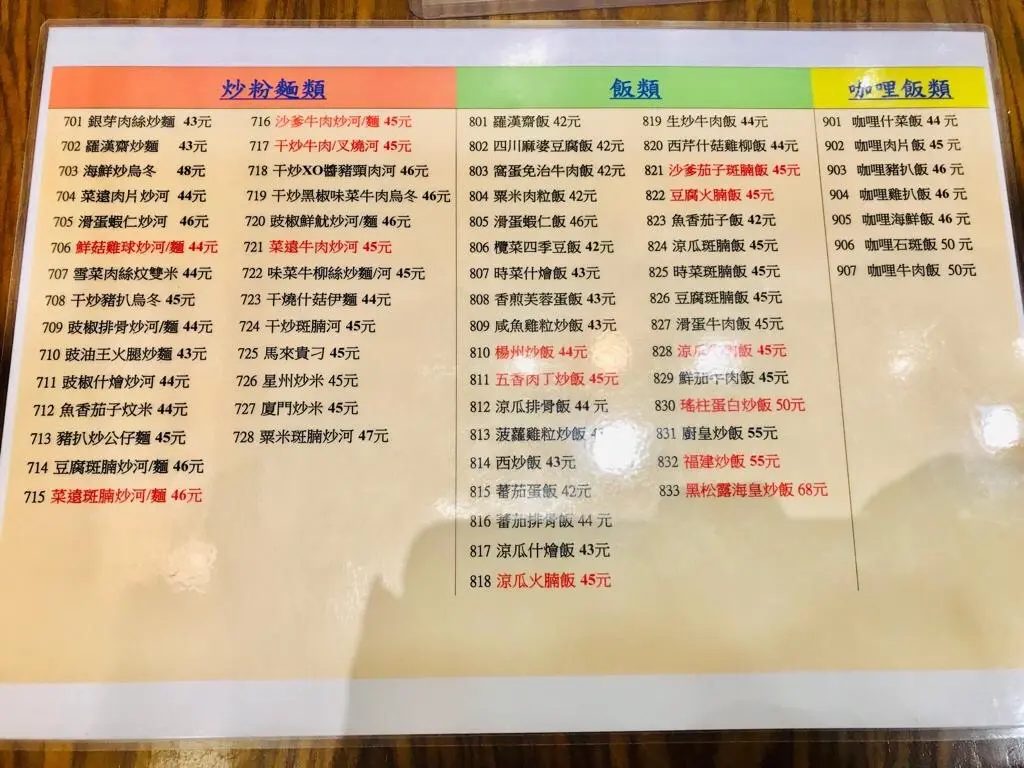 炒粉麵類
701 銀芽肉絲炒麵 43元
702 羅漢齋炒麵 43元
703 海鮮炒烏冬 48元
704 菜遠肉片炒河 44元
705 滑蛋蝦仁炒河 46元
706 鮮菇雞球炒河/麵 44元
707 雪菜肉絲炆雙米 44元
708 干炒豬扒烏冬 45元
709 豉椒排骨炒河/麵 44元
710 豉油王火腩炒麵 43元
711 豉椒什燴炒河 44元
712 魚香茄子炆米 44元
713 豬扒炒公仔麵 45元
714 豆腐斑腩炒河/麵 46元
715 菜遠斑腩炒河/麵 46元
716 沙爹牛肉炒河/麵 45元
717 干炒牛肉/叉燒河 45元
718 干炒XO醬豬頸肉河 46元
719 干炒黑椒味菜牛肉烏冬 46元
720 豉椒鮮魷炒河/麵 46元
721 菜遠牛肉炒河 45元
722 味菜牛柳絲炒麵/河 45元
723 干燒什菇伊麵 44元
724 干炒斑腩河 45元
725 馬來貴刁 45元
726 星州炒米 45元
727 廈門炒米 45元
728 粟米斑腩炒河 47元
飯類
801 羅漢齋飯 42元
802 四川麻婆豆腐飯 42元
803 窩蛋免治牛肉飯 42元
804 粟米肉粒飯 42元
805 滑蛋蝦仁飯 46元
806 欖菜四季豆飯 42元
807 時菜什燴飯 43元
808 香煎芙蓉蛋飯 43元
809 咸魚雞粒炒飯 43元
810 楊州炒飯 44元
811 五香肉丁炒飯 45元
812 涼瓜排骨飯 44 元
813 菠蘿雞粒炒飯
814 西炒飯 43元
815 蕃茄蛋飯 42元
816 蕃茄排骨飯 44 元
817 涼瓜什燴飯 43元
818 涼瓜火腩飯 45元
819 生炒牛肉飯 44元
820 西芹什菇雞柳飯 44元
821 沙爹茄子斑腩飯 45元
822 豆腐火腩飯 45元
823 魚香茄子飯 42元
824 涼瓜斑腩飯 45元
825 時菜斑腩飯 45元
826 豆腐斑腩飯 45元
827 滑蛋牛肉飯 45元
828 涼瓜 飯 45元
829 鮮茄牛肉飯 45元
830 瑤柱蛋白炒飯 50元
831 廚皇炒飯 55元
832 福建炒飯 55元
833 黑松露海皇炒飯 68元
咖哩飯類
901 咖哩什菜飯 44 元
902 咖哩肉片飯 45 元
903 咖哩豬扒飯 46 元
904 咖哩雞扒飯 46 元
905 咖哩海鮮飯 46 元
906 咖哩石斑飯 50 元
907 咖哩牛肉飯 50元